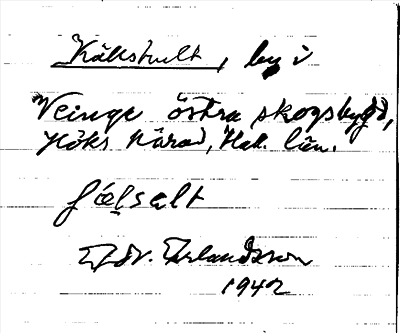 Källshult, by i
Veinge östra skogsbygd,
Höks härad, Hal. län.
Edv. Erlandsson
1942